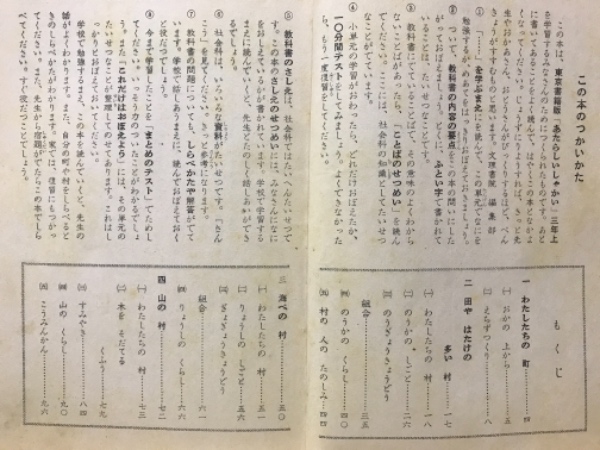 この本のつかいかた
この本は、東京書籍版「あたらしいしゃかい」三年上
を学習するみなさんのためにつくられたものです。あと
に書いてあることをよく読んで、はやくこの本となかよ
くなってください。そして、しょうずに
生やおかあさん、おとうさんがびっくりするほど、べん
きょうがすすむものと思います。文理書院 編集部
①「……を学ぶまえに」を読んで、この単元でなにを
勉強するか、めあてをはっきりおぼえておきましょう。
② ついで、教科書の内容の要点をこの本の問いにした
がっておぼえましょう。とくに、ふとい字で書かれて
いることは、たいせつなことです。
③ 教科書にでていることばで、その意味のよくわから
ないことばがあったら、「ことばのせつめい」を読ん
でください。ここには、社会科の知識としてたいせつ
なことがでています。
④ 小単元の学習がおわったら、どれだけおぼえたか、
一〇分間テストをしてみましょう。よくできなかった
ら、もう一度復習をしてください。
⑤ 教科書のさし絵は、社会科ではたいへんたいせつで
す。この本のさし元のせつめいには、みなさんになに
をおしえているかが書かれています。学校で学習する
まえに読んでいくと、先生とたのしく話しあいができ
るでしょう。
⑥ 社会科は、いろいろな資料がたいせつです。「さん
こう」を見てください。きっと参考になります。
⑦ 教科書の問題についても、しらべかたや解答がでて
います。学校で話しあうまえに、読んでおぼえておく
と役だつでしょう。
⑧ 今まで学習したことを「まとめのテスト」でためし
てください。いっそう力のついたことがわかるでしょ
う。また「これだけはおぼえよう」には、その単元の
たいせつなことが整理してのせてあります。これはし
っかりとおぼえておいてください。
学校で勉強するまえ、この本を読んでいくと、先生の
話がよくわかります。また、自分の町や村をしらべると
きのしらべかたがわかります。家では、復習にもつかっ
てください。また、先生から宿題がでたらこの本でしら
べてください。すぐ役だつことでしょう。
もくじ
一 わたしたちの 町……四
㈠ おかの 上から……五
㈡ えちずつくり……八
二 田や はたけの
多い 村……一七
㈠ わたしたちの 村……一八
㈡ のうかの しごと……二六
㈢ のうぎょうきょうどう
組合……三五
㈣ のうかの くらし……三九
㈤ 村の 人の たのしみ……四四
三 海べの 村……五〇
㈠ わたしたちの 村……五一
㈡ りょうしの しごと……五六
㈢ ぎょぎょうきょうどう
組合……六一
㈣ りょうしの くらし……六六
四 山の 村……七二
㈠ わたしたちの 村……七三
㈡ 木を そだてる
くふう……七九
㈢ すみやき……八四
㈣ 山の くらし……九〇
㈤ こうみんかん……九六